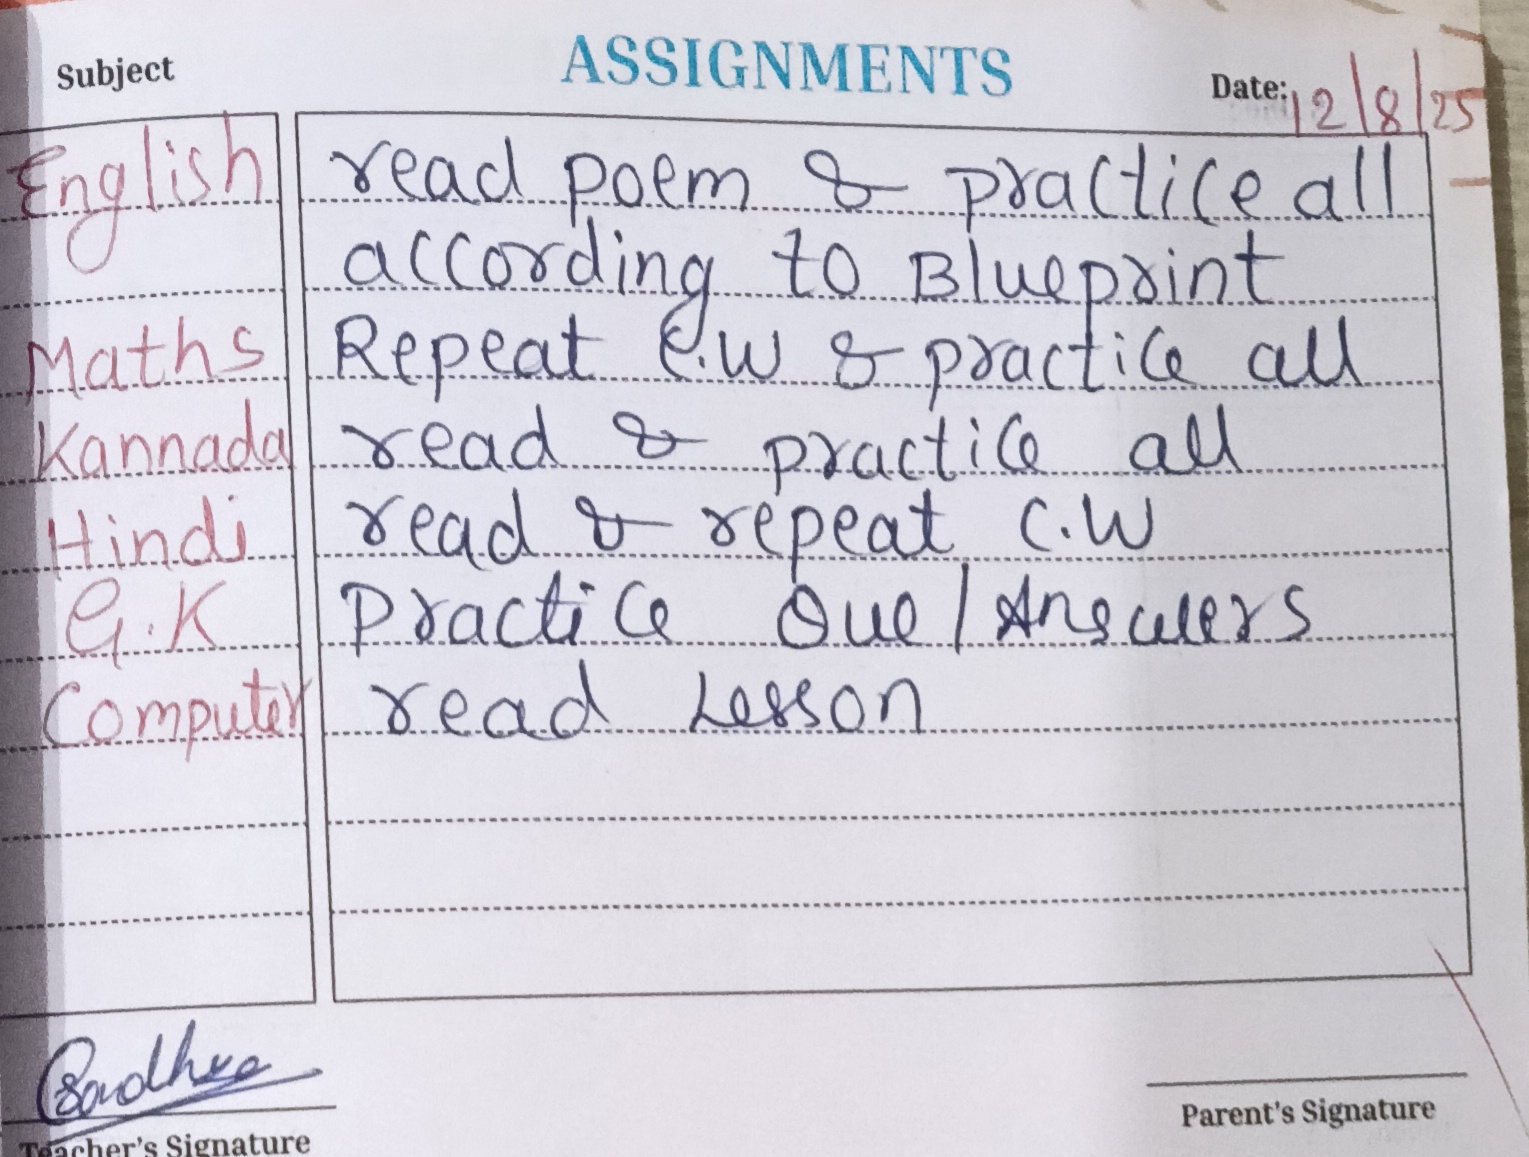 Subject ASSIGNMENTS Date: 12/8/25
English read poem & practice all
according to Blueprint
Maths Repeat C.W & practice all
Kannada read & practice all
Hindi read & repeat C.W
G.K Practice Que/Answers
Computer read Lesson
Teacher's Signature Parent's Signature